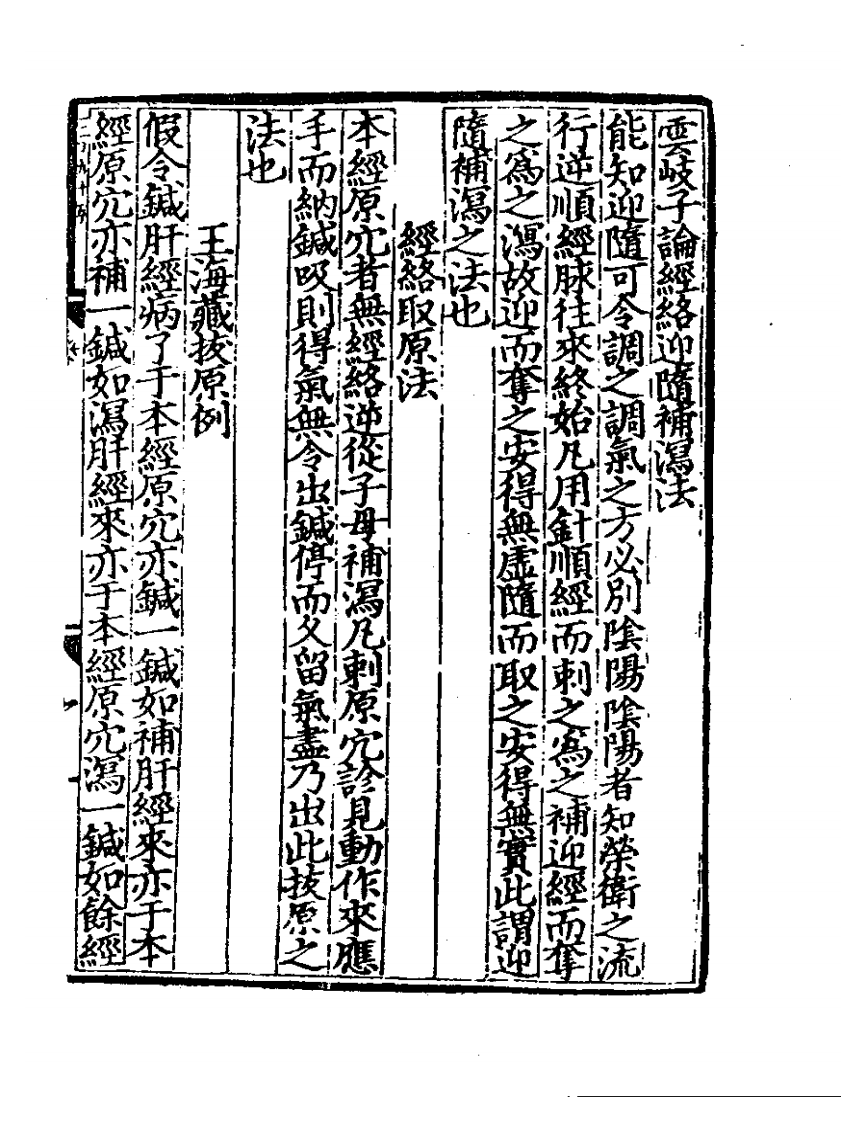 雲岐子論經絡迎隨補瀉法
能知迎隨可令調之調氣之方必別陰陽陰陽者知榮衛之流
行逆順經脉往來終始凡用針順經而刺之爲之補迎經而奪
之爲之瀉故迎而奪之安得無虛隨而取之安得無實此謂迎
隨補瀉之法也
經絡取原法
本經原穴者無經絡逆從子母補瀉凡刺原穴診見動作來應
手而納鍼吸則得氣無令出鍼停而久留氣盡乃出此拔原之
法也
王海藏拔原例
假令鍼肝經病了于本經原穴亦鍼一鍼如補肝經來亦于本
經原穴亦補一鍼如瀉肝經來亦于本經原穴瀉一鍼如餘經